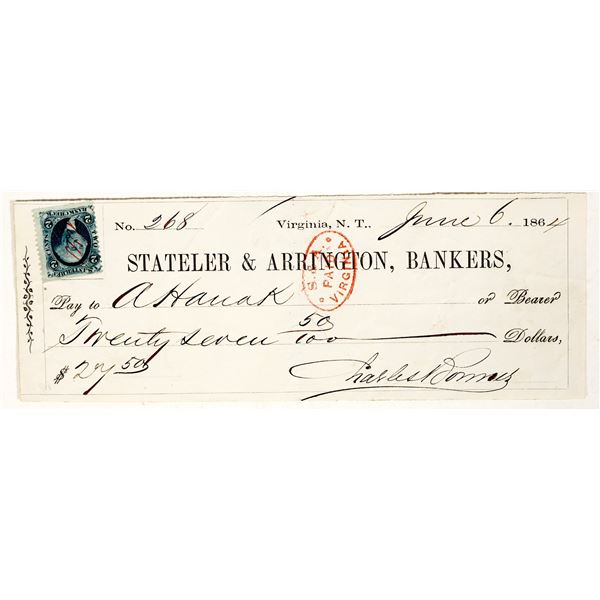 No. 268 Virginia, N. T.. June 6. 1864
STATELER & ARRINGTON, BANKERS,
Pay to A Hanak or Bearer
Twenty seven 50/100 Dollars,
$27 50
Charles Bonner
S. & A.
PAID
VIRGINIA
2 2